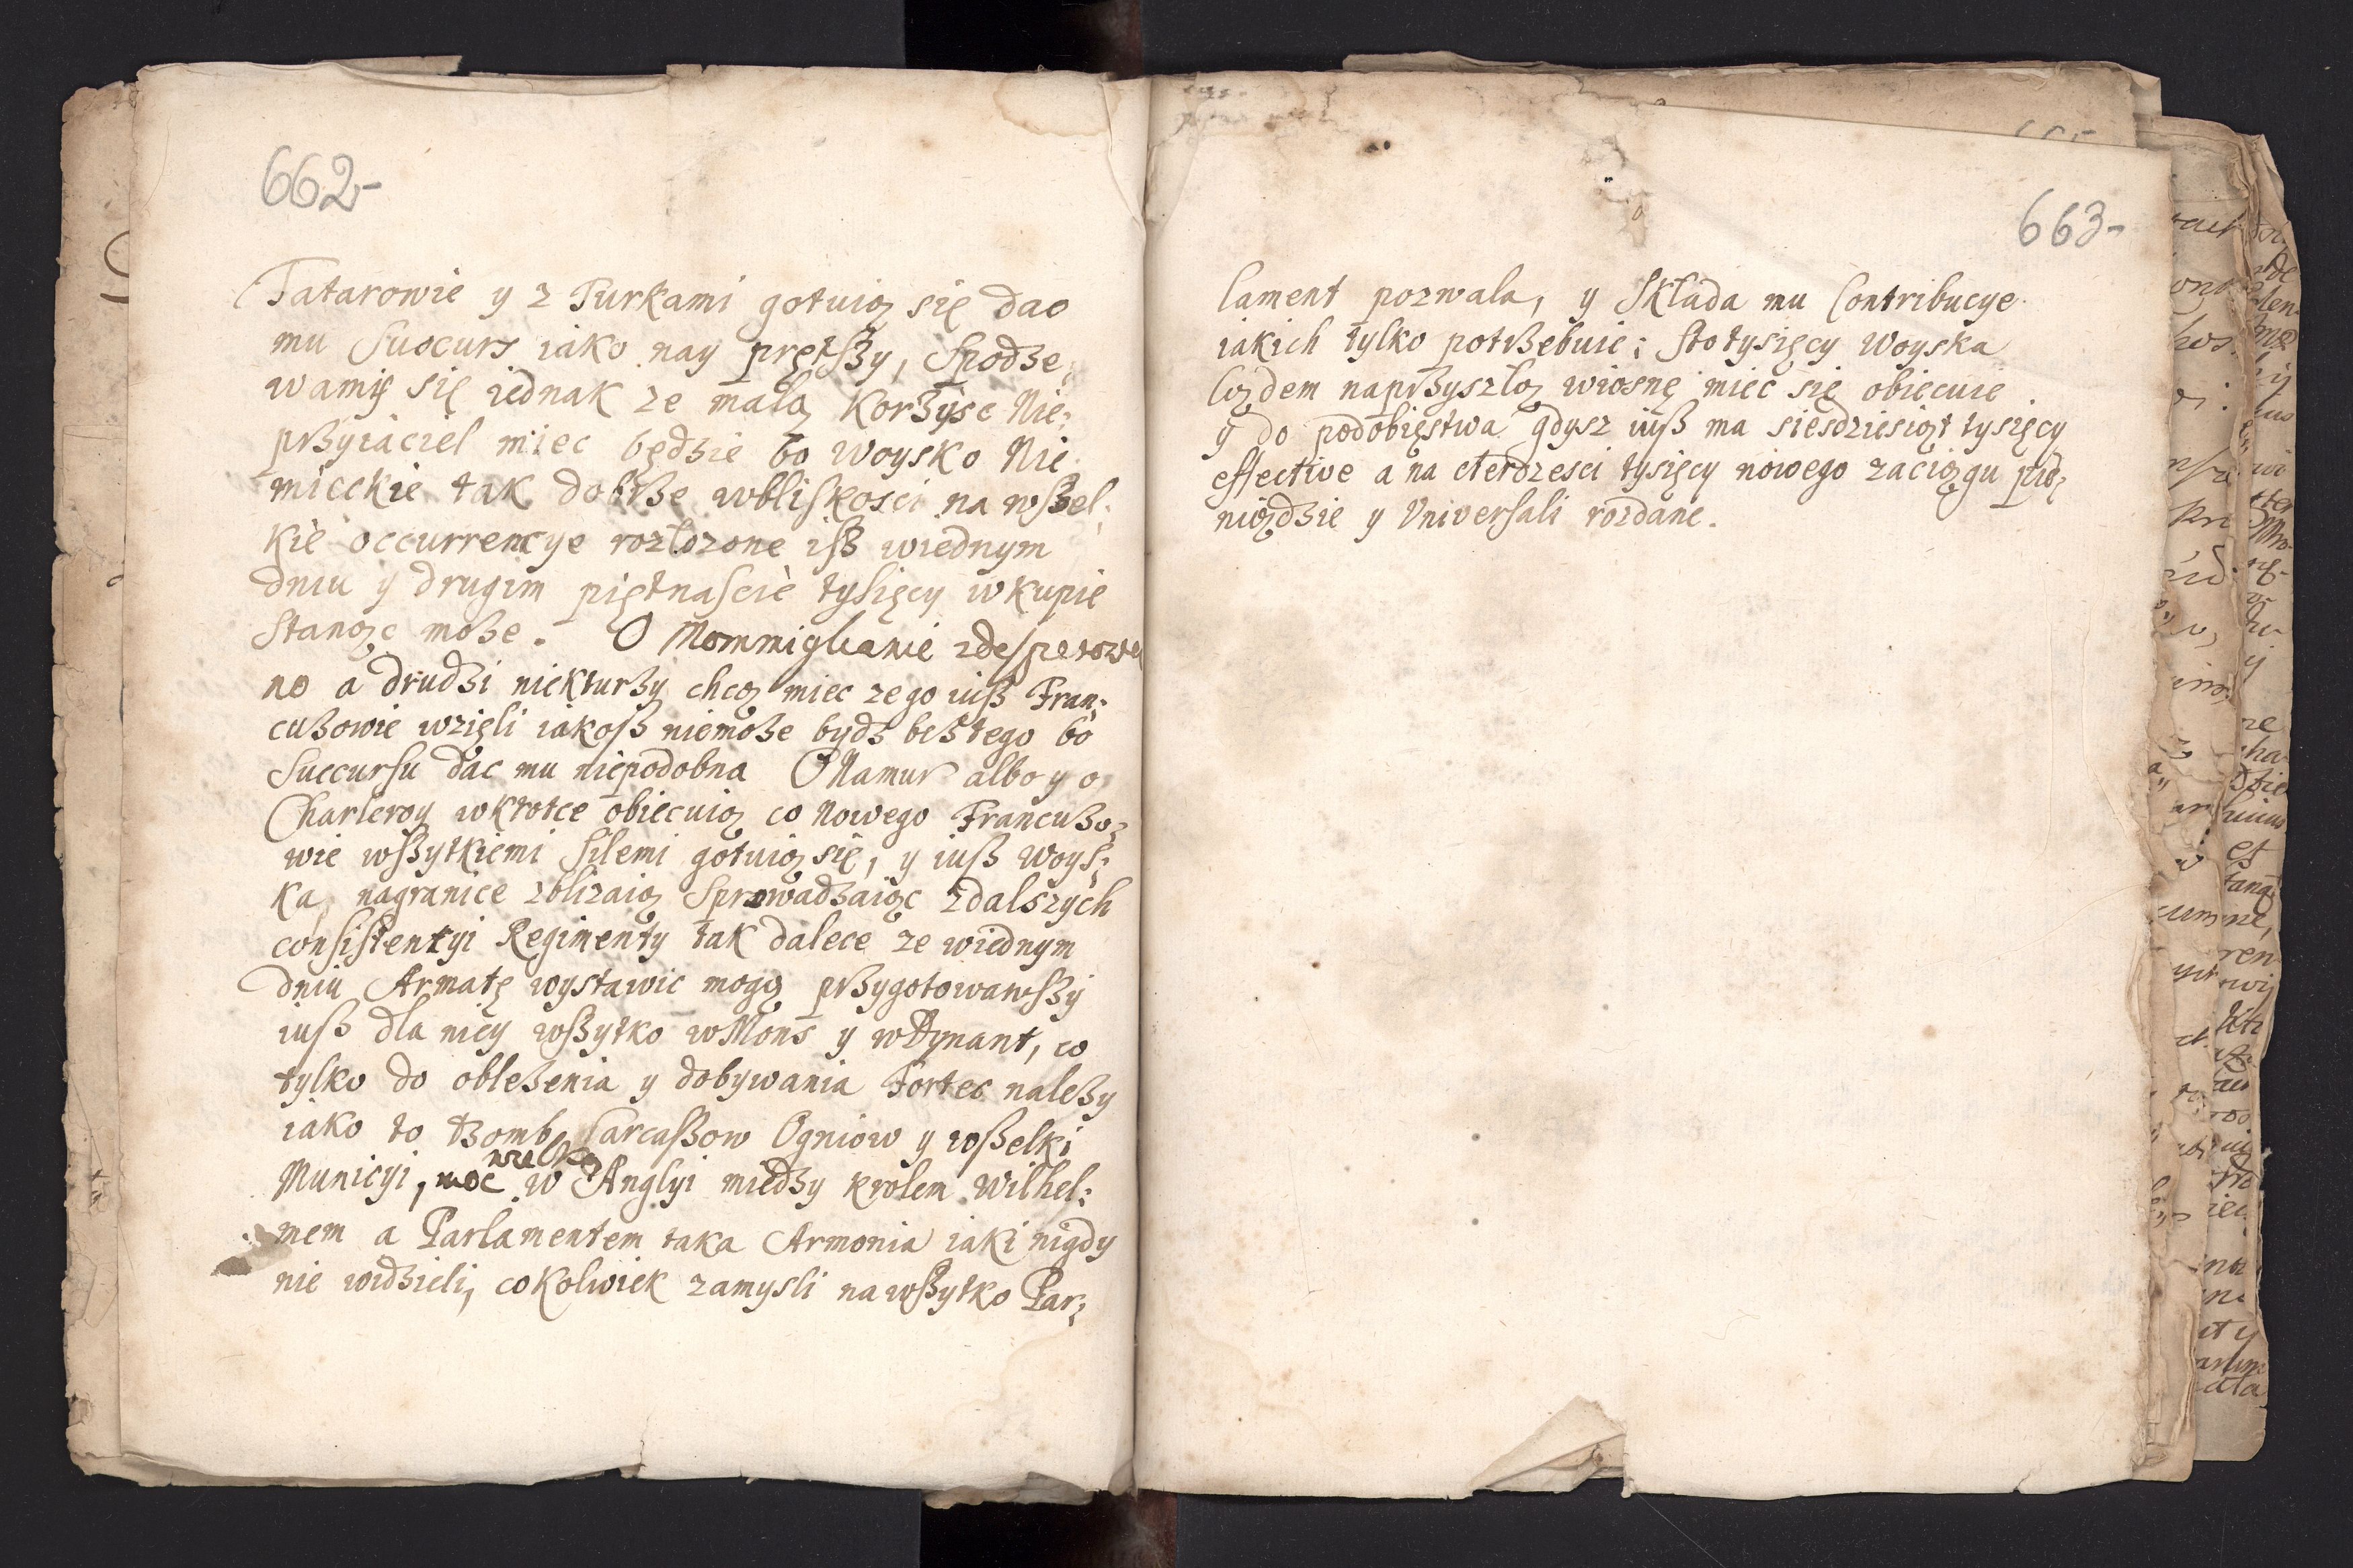 662
Tatarowie y z Turkami gotuią się dac
mu Suocurs iako nay prętßy, Spodze,
wamy się iednak ze małą Korzysc Nie:
przyiaciel miec będzie bo woysko Nie
mieckie tak dobrze wbliskosci na wßel:
kie occurrencye rozłozone iß wiednym
dniu y drugim piętnascie tysięcy w kupie
Stanąc może. O Mommiglianie zdesperowa
no a drudzi niekturzy chcą miec ze go iuß Fran:
cuzowie wzięli iakoß niemoże bydz beß tego bo
Succursu dac mu niepodobna O Namur albo y o
Charleroy wkrotce obiecuią co Nowego Francuzo,
wie wßytkiemi Silemi gotuią się, y iuß woys:
ka nagranice zblizaią Sprowadzaiąc zdalszych
consistentyi Regimenty tak dalece ze wiednym
dniu Armatę wystawic mogą przygotowawßy
iuß dla niey wßytko w Mons y w Dynant, co
tylko do oblężenia y dobywania Fortec należy
iako to Bomb Carcaßow Ogniow y wßelki
wielką
Municyi, moc w Anglyi miedzy krolem Wilhel:
mem a Parlamentem taka Armonia iaki nigdy
nie widzieli, cokolwiek zamysli na wßytko Par:
663
lament pozwala, y Sklada mu Contribucye
iakich tylko potrzebuie; Sto tysięcy Woyska
Lądem naprzyszłą wiosnę miec się obiecuie
y do podobięstwa gdysz iuß ma siesdziesiąt tysięcy
effective a na cterdzesci tysięcy nowego zaciągu pie,
niądzie y Universali rozdane.